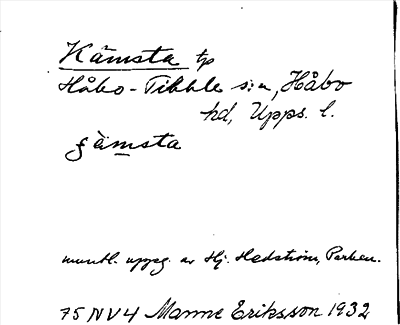 Kämsta tp
Håbo-Tibble s:n, Håbo
hd, Upps. l.
çämsta
muntl. uppg. av Hj. Hedström, Parken.
75 NV4 Manne Eriksson 1932